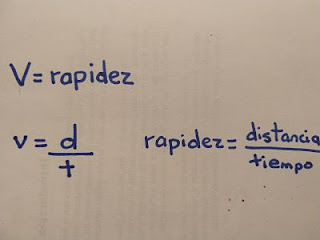 V = rapidez
v = d/t
rapidez = distancia/tiempo